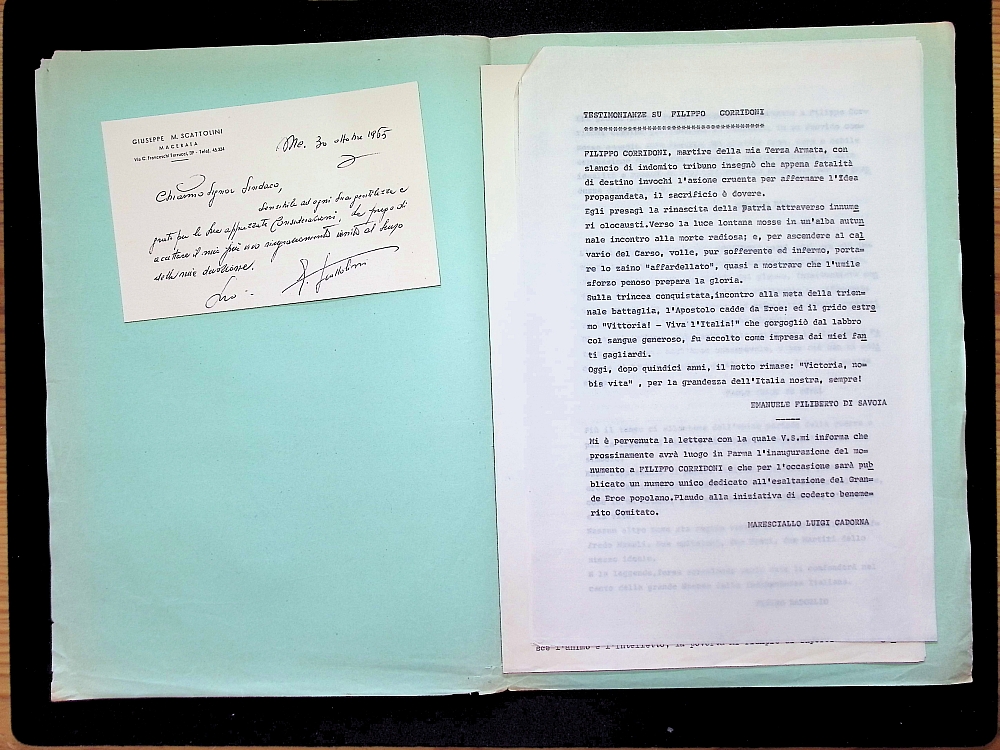 GIUSEPPE M. SCATTOLINI
MACERATA
Via G. Franceschi Ferrucci, 39 - Telef. 45.324
Mc. 30 ottobre 1965
Chiar.mo Signor Sindaco,
sensibile ad ogni Sua gentilezza e
grato per le Sue apprezzate considerazioni, La prego di
accettare il mio più vivo ringraziamento unito al senso
della mia devozione.
Suo
G. Scattolini
TESTIMONIANZE SU FILIPPO CORRIDONI
************************************
FILIPPO CORRIDONI, martire della mia Terza Armata, con
slancio di indomito tribuno insegnò che appena fatalità
di destino invochi l'azione cruenta per affermare l'Idea
propagandata, il sacrificio è dovere.
Egli presagì la rinascita della Patria attraverso innume
ri olocausti.Verso la luce lontana mosse in un'alba autun
nale incontro alla morte radiosa; e, per ascendere al cal
vario del Carso, volle, pur sofferente ed infermo, porta=
re lo zaino "affardellato", quasi a mostrare che l'umile
sforzo penoso prepara la gloria.
Sulla trincea conquistata,incontro alla meta della trien=
nale battaglia, l'Apostolo cadde da Eroe: ed il grido estre
mo "Vittoria! - Viva l'Italia!" che gorgogliò dal labbro
col sangue generoso, fu accolto come impresa dai miei fan
ti gagliardi.
Oggi, dopo quindici anni, il motto rimase: "Victoria, no=
bis vita" , per la grandezza dell'Italia nostra, sempre!
EMANUELE FILIBERTO DI SAVOIA
-----
Mi è pervenuta la lettera con la quale V.S.mi informa che
prossimamente avrà luogo in Parma l'inaugurazione del mo=
numento a FILIPPO CORRIDONI e che per l'occasione sarà pub
blicato un numero unico dedicato all'esaltazione del Gran=
de Eroe popolano.Plaudo alla iniziativa di codesto beneme=
rito Comitato.
MARESCIALLO LUIGI CADORNA